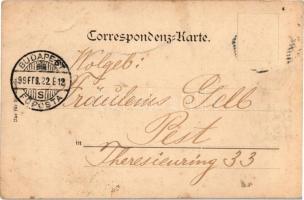 Correspondenz-Karte.
BUDAPEST
99 FEB. 22. E 12
S
FŐPOSTA
Wolgeb:
Fräuleins Gell
Pest
in
Theresienring 33